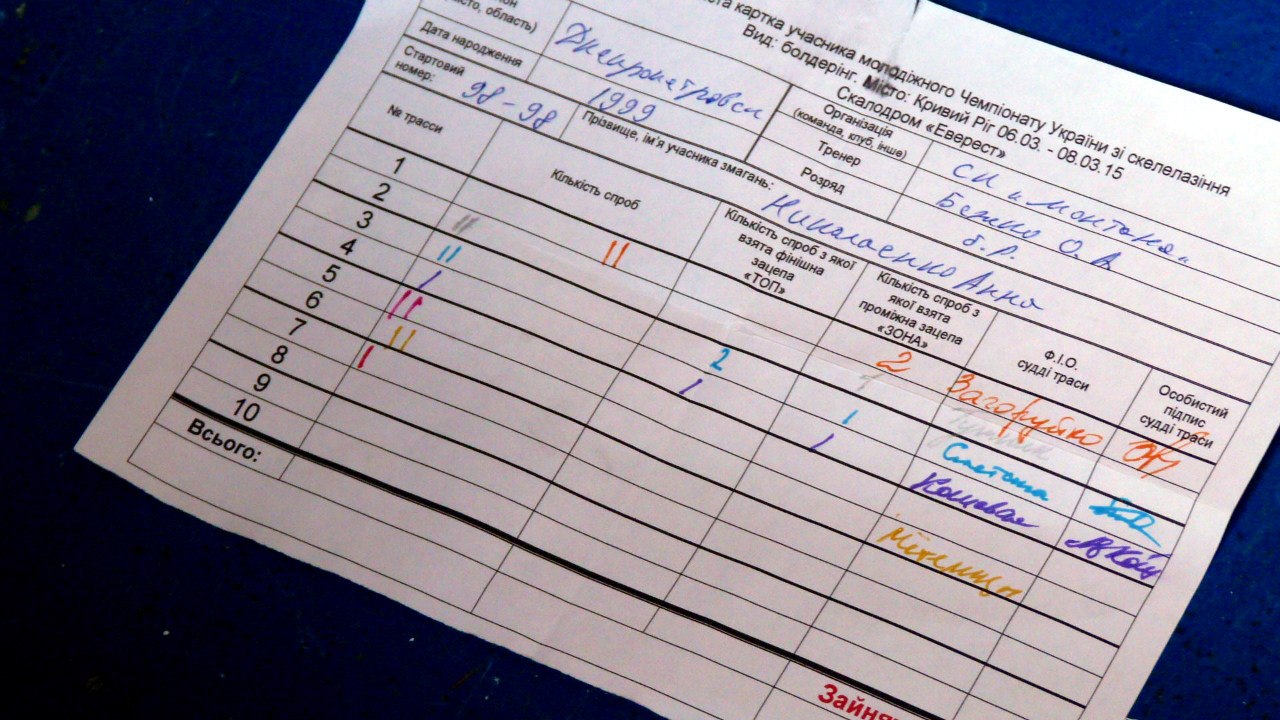 ста картка учасника молодіжного Чемпіонату України зі скелелазіння
Вид: болдерінг. Місто: Кривий Ріг 06.03. - 08.03.15
Скалодром «Еверест»
(місто, область)
Днепропетровск
Організація
(команда, клуб, інше)
СК "Монтана"
Дата народження
1999
Тренер
О. А
Стартовий номер:
98-98
Розряд
б.р.
Прізвище, ім'я учасника змагань:
Николаенко Анна
№ трасси
Кількість спроб
Кількість спроб з якої взята фінішна зацепа «ТОП»
Кількість спроб з якої взята проміжна зацепа «ЗОНА»
Ф.І.О. судді траси
Особистий підпис судді траси
1 II 2 Загоруйко
2 II
3 II 2 1
4 I 1 1 Кошевая
5 II
6 II
7 I
8
9
10
Всього:
Зайня